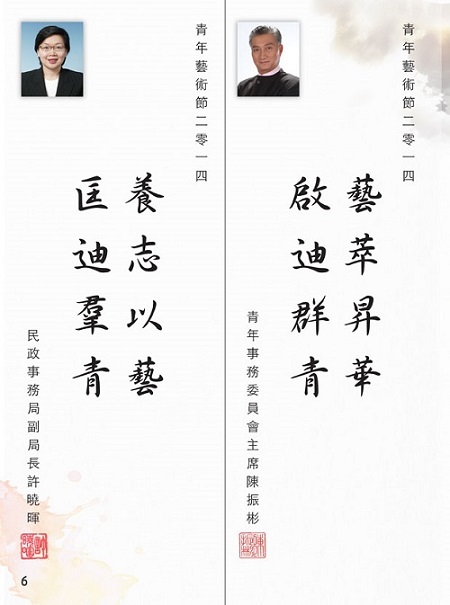 青年藝術節二零一四
藝萃昇華
啟迪群青
青年事務委員會主席陳振彬
青年藝術節二零一四
養志以藝
匡迪羣青
民政事務局副局長許曉暉
6